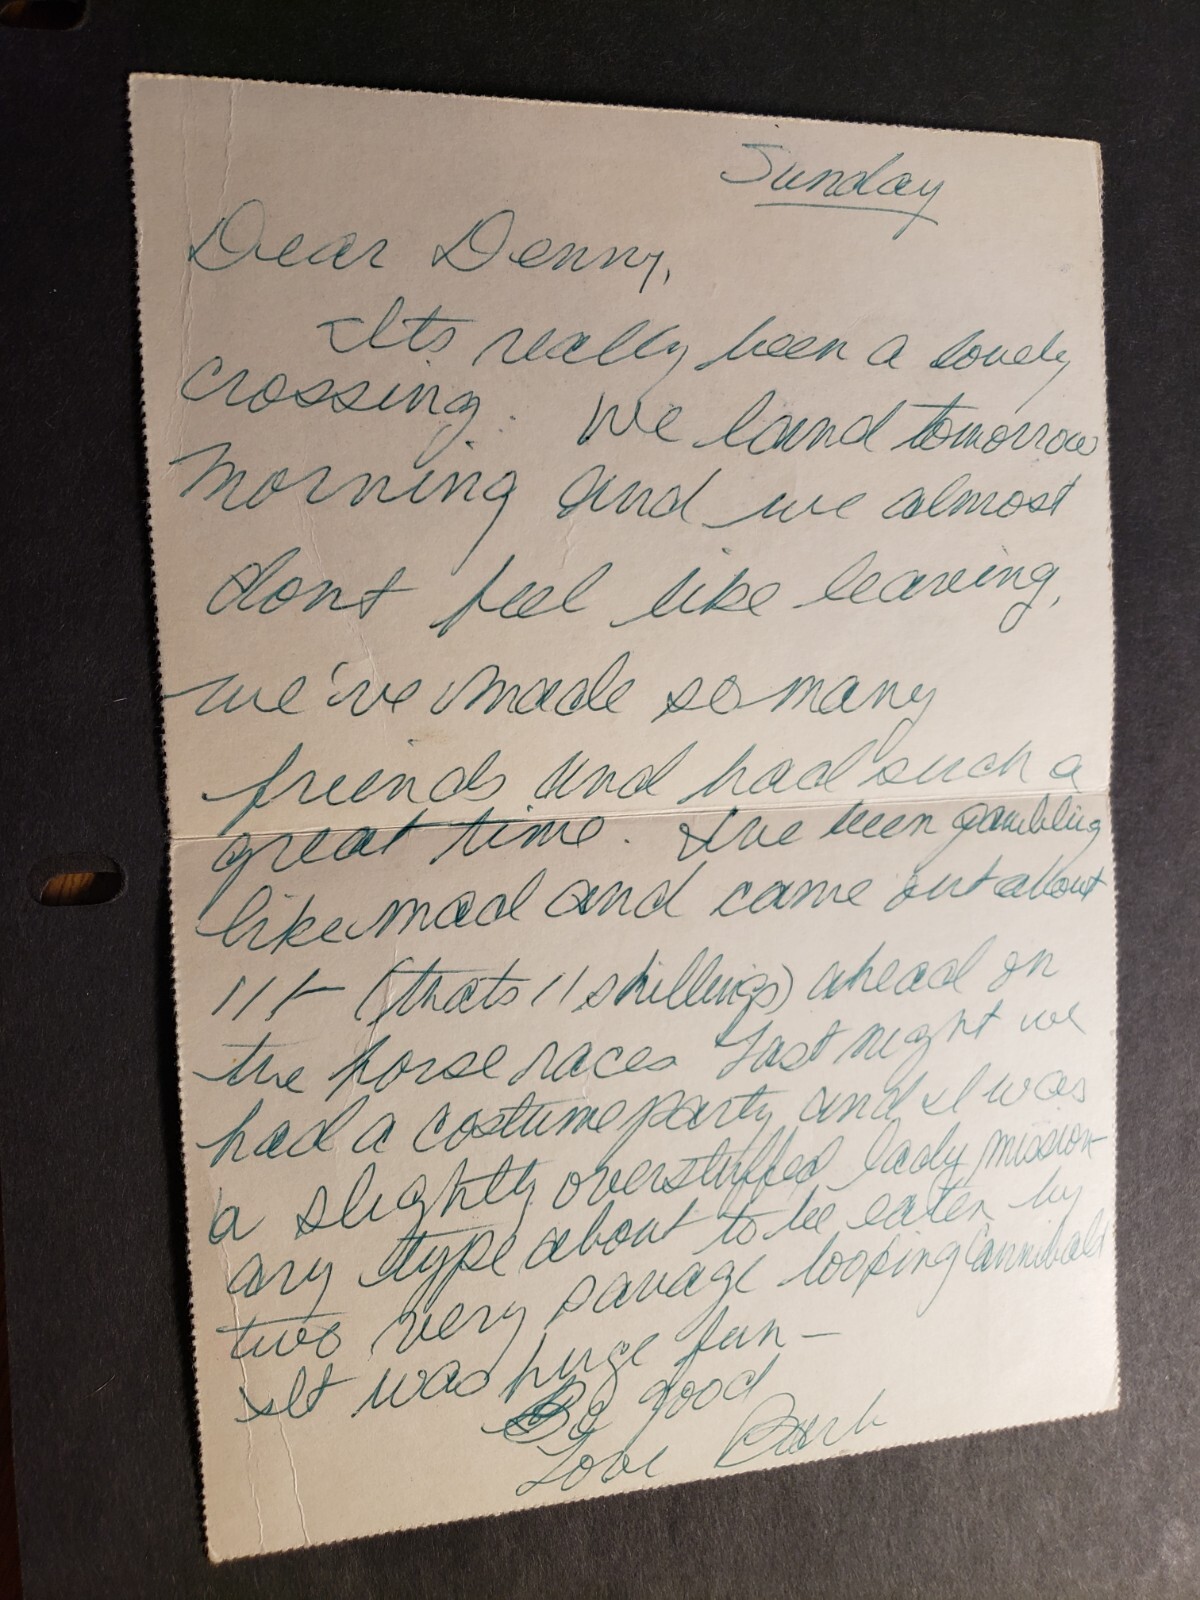 Sunday
Dear Denny,
Its really been a lovely
crossing. We land tomorrow
morning and we almost
dont feel like leaving,
we've made so many
friends and had such a
great time. I've been gambling
like mad and came out about
11/- (thats 11 shillings) ahead on
the horse races Last night we
had a costume party and I was
a slightly overstuffed lady mission-
ary type about to be eaten by
two very savage looking Cannibals
It was huge fun—
Be good
Love Barb